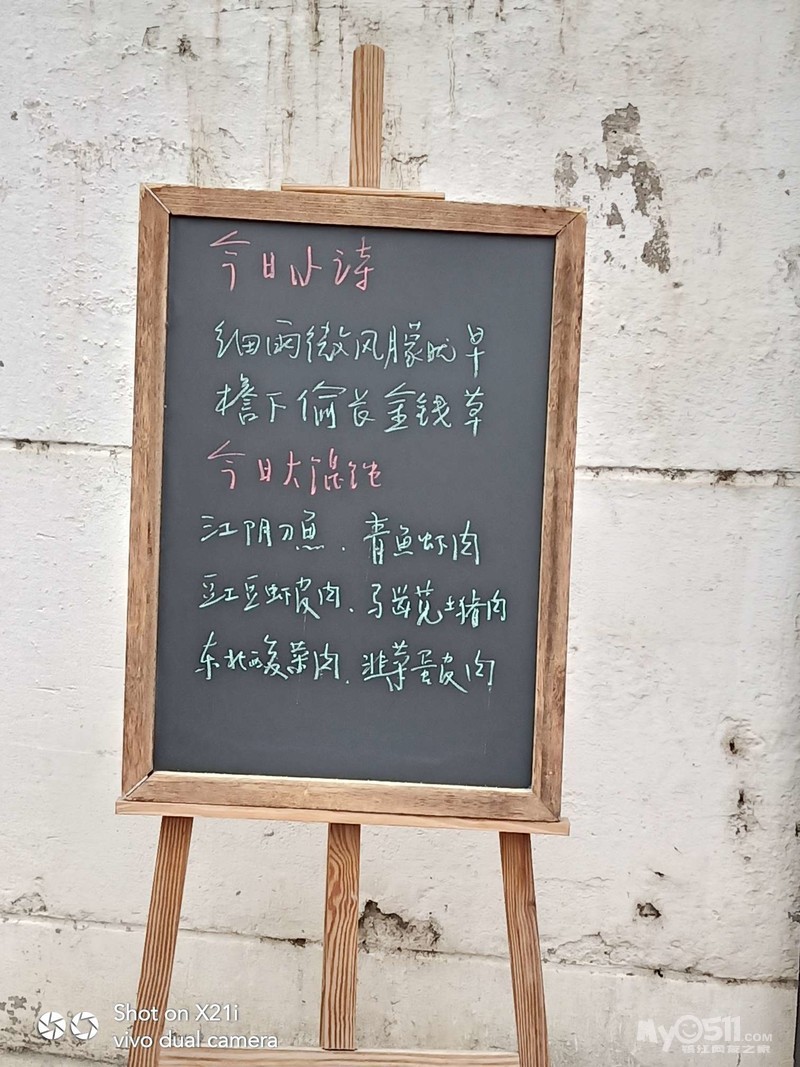 今日小诗
细雨微风朦胧早
檐下偷长金钱草
今日大馄饨
江阴刀鱼、青鱼虾肉
豇豆虾皮肉、马齿苋土猪肉
东北酸菜肉、韭菜蛋皮肉
Shot on X21i
vivo dual camera
MyO511.COM
镇江网友之家